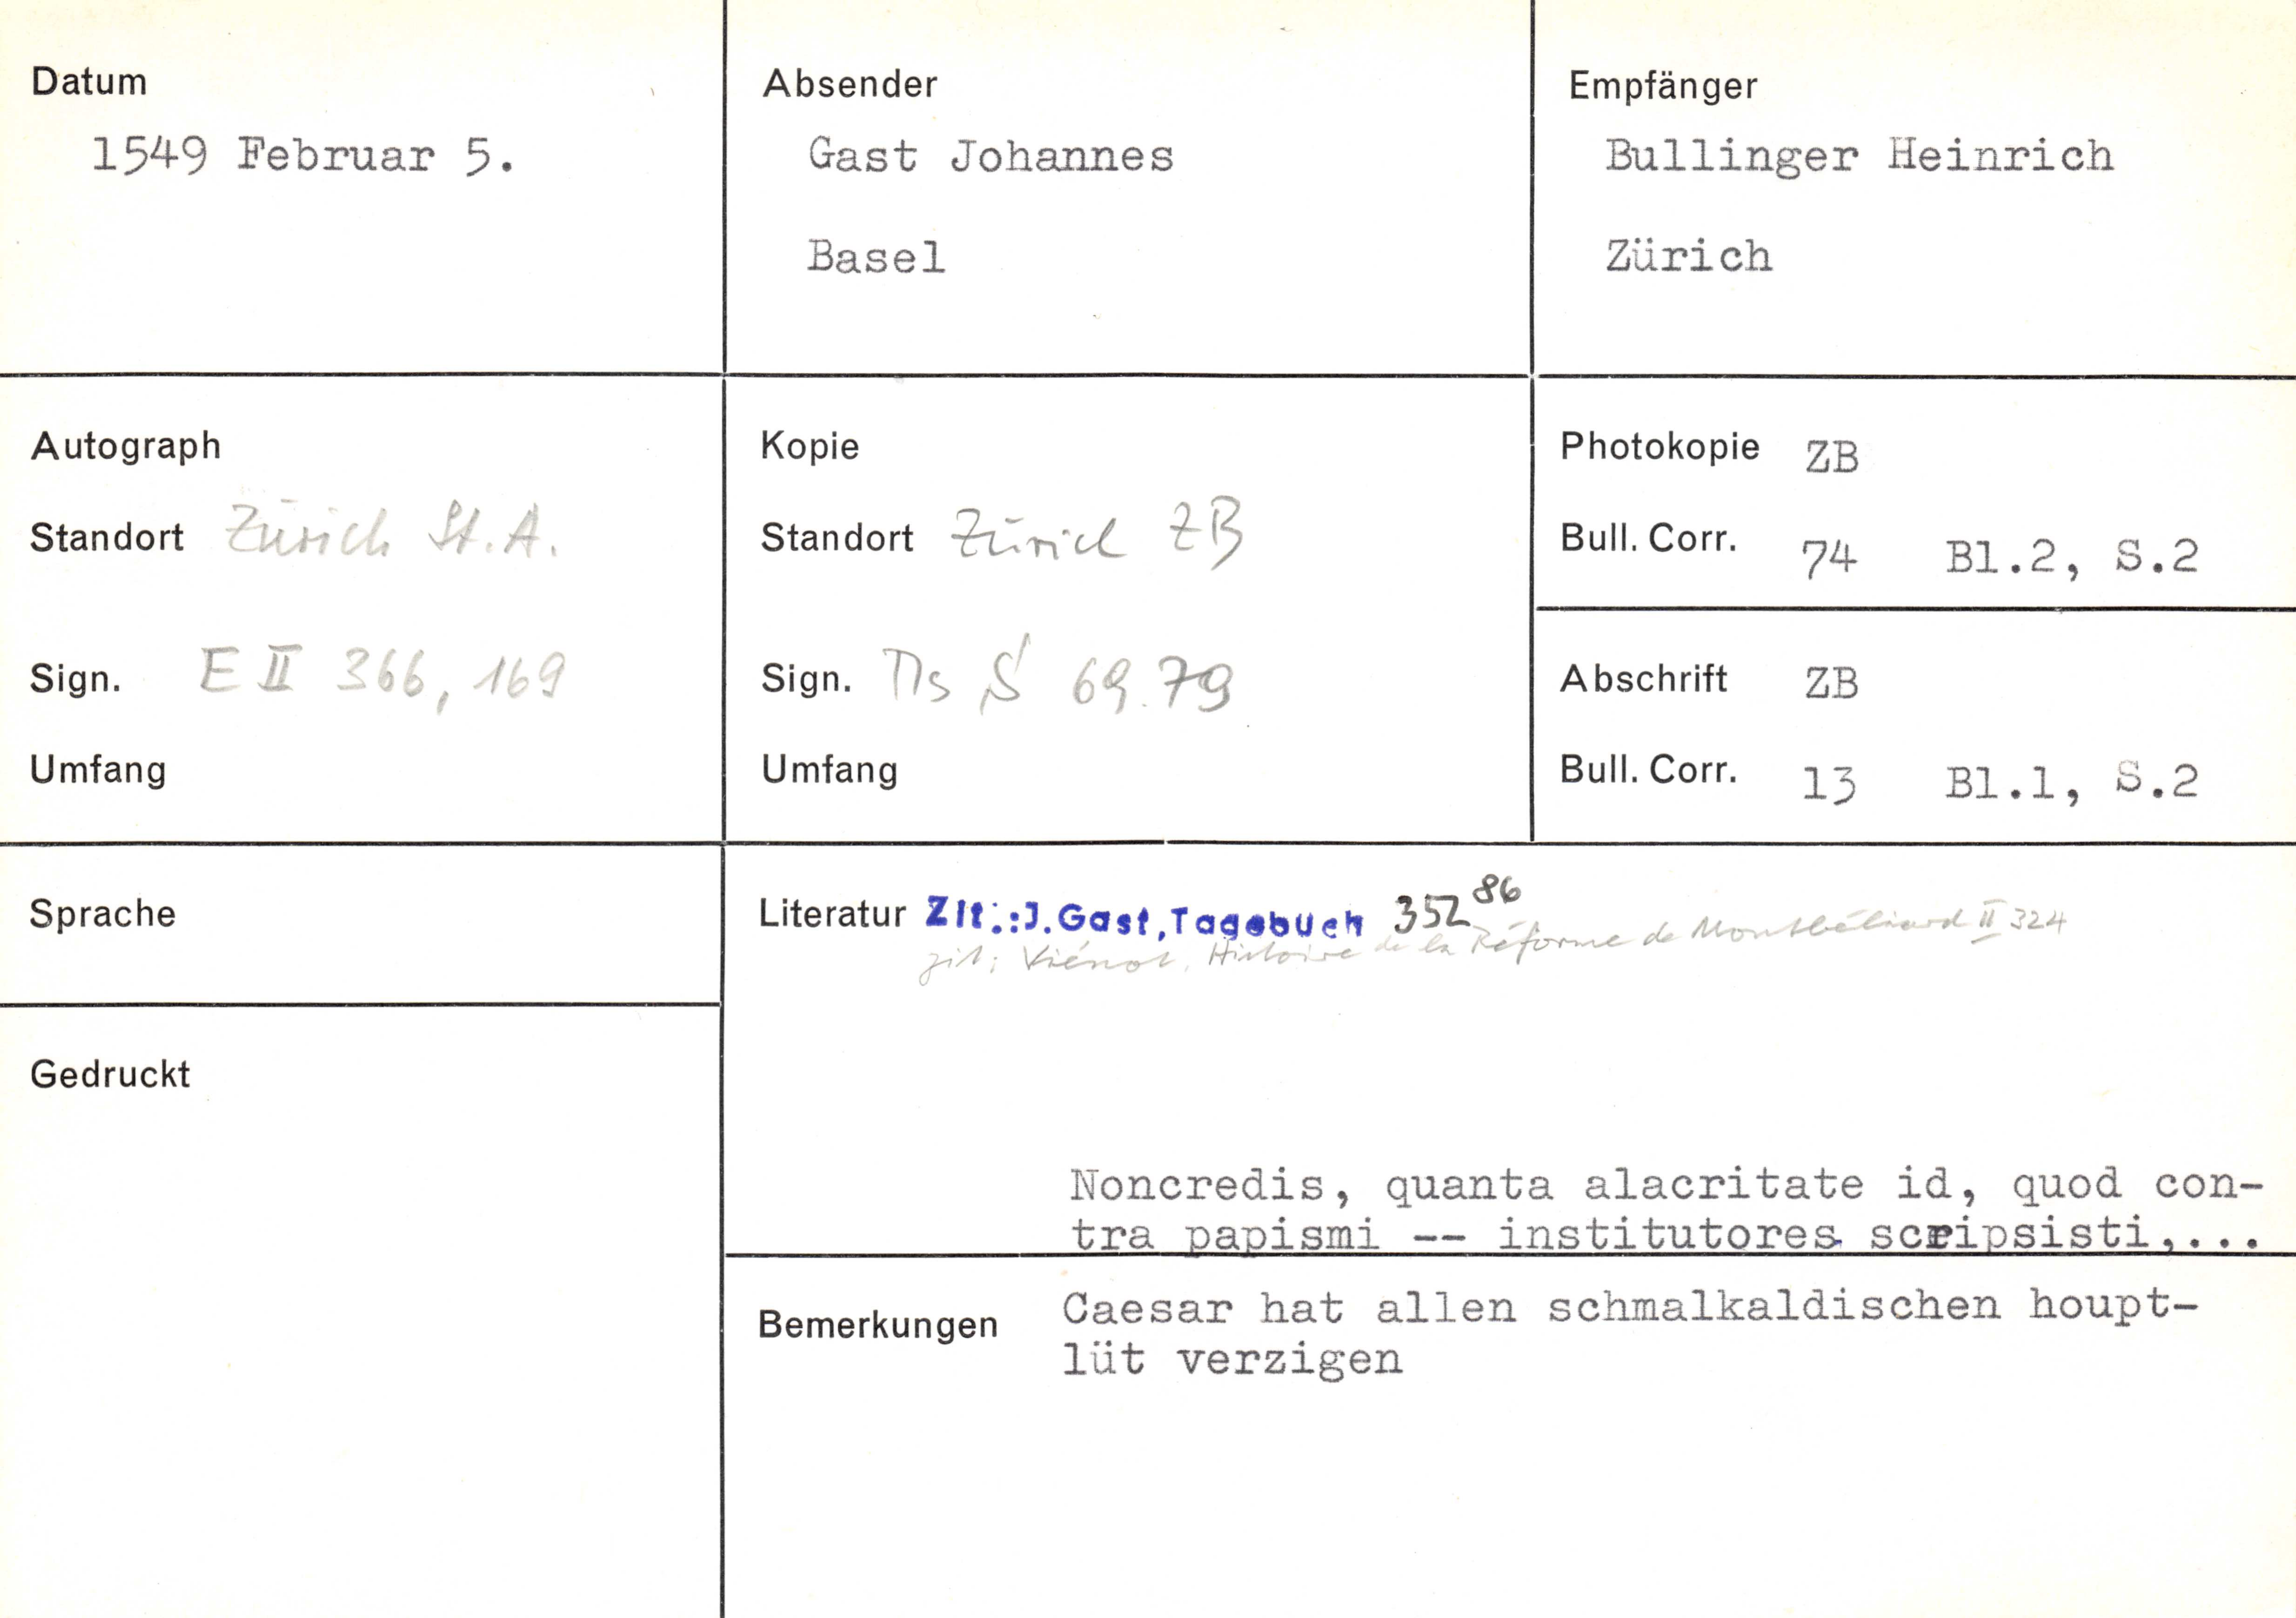 Datum
1549 Februar 5.
Absender
Gast Johannes
Basel
Empfänger
Bullinger Heinrich
Zürich
Autograph
Standort Zürich St.A.
Sign. E II 366, 169
Umfang
Kopie
Standort Zürich ZB
Sign. Ms S 69.79
Umfang
Photokopie ZB
Bull. Corr. 74 Bl.2, S.2
Abschrift ZB
Bull. Corr. 13 Bl.1, S.2
Sprache
Gedruckt
Literatur Zit.:J.Gast,Tagebuch 352 86
zit: Viénot, Histoire de la Réforme de Montbéliard II 324
Noncredis, quanta alacritate id, quod con-
tra papismi -- institutores scripsisti,...
Bemerkungen
Caesar hat allen schmalkaldischen houpt-
lüt verzigen